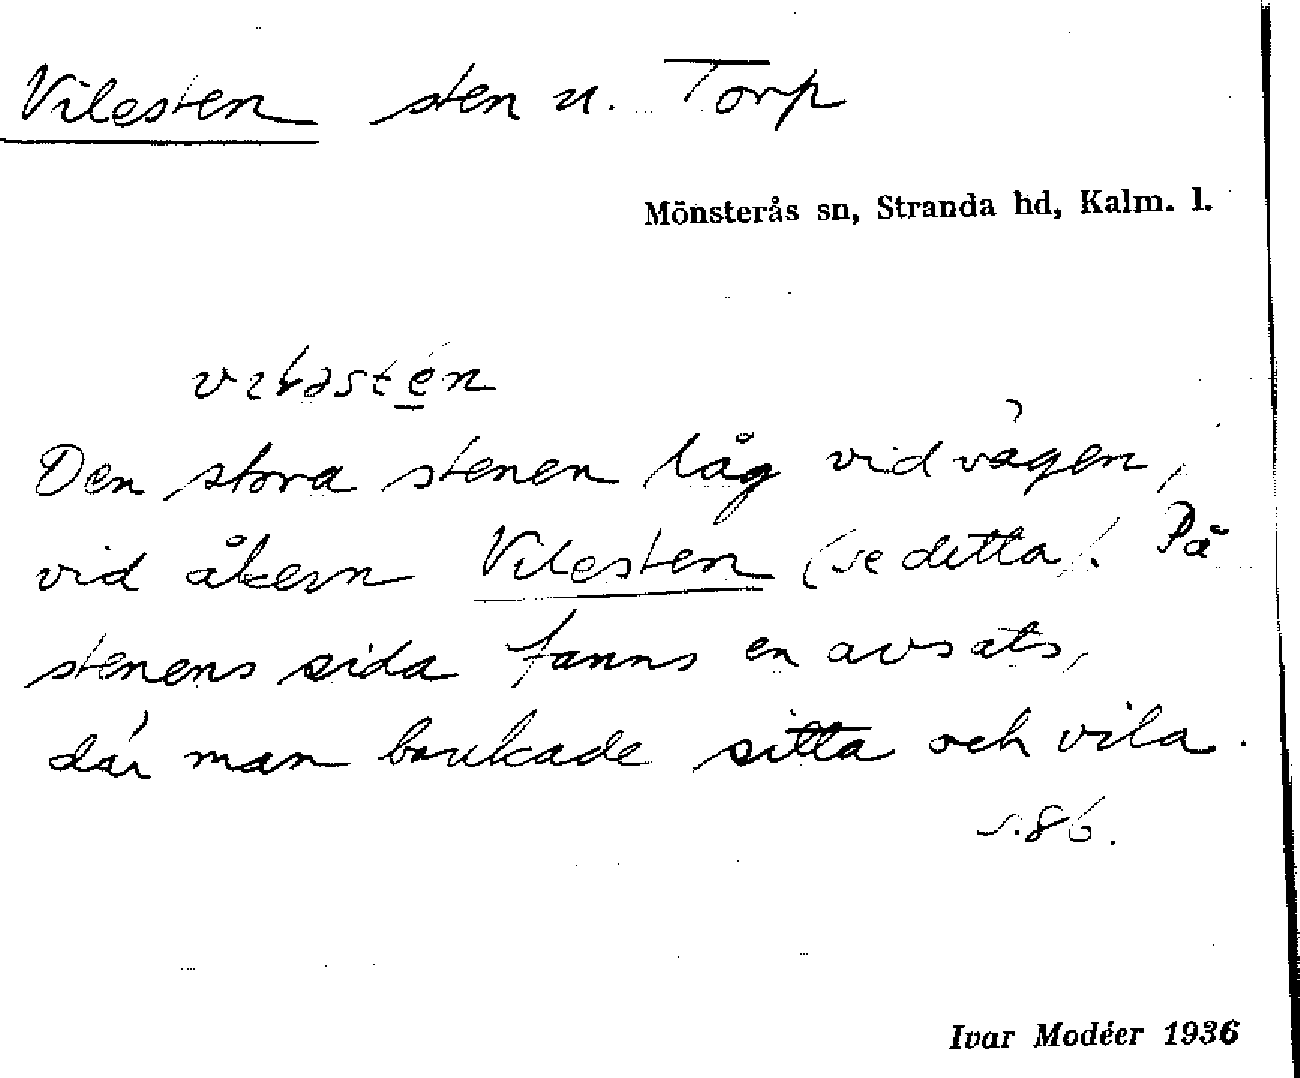 Vilesten sten u. Torp
Mönsterås sn, Stranda hd, Kalm. l.
Den stora stenen låg vid vägen,
vid åkern Vilesten (se detta). På
stenens sida fanns en avsats,
där man brukade sitta och vila.
s. 86.
Ivar Modéer 1936